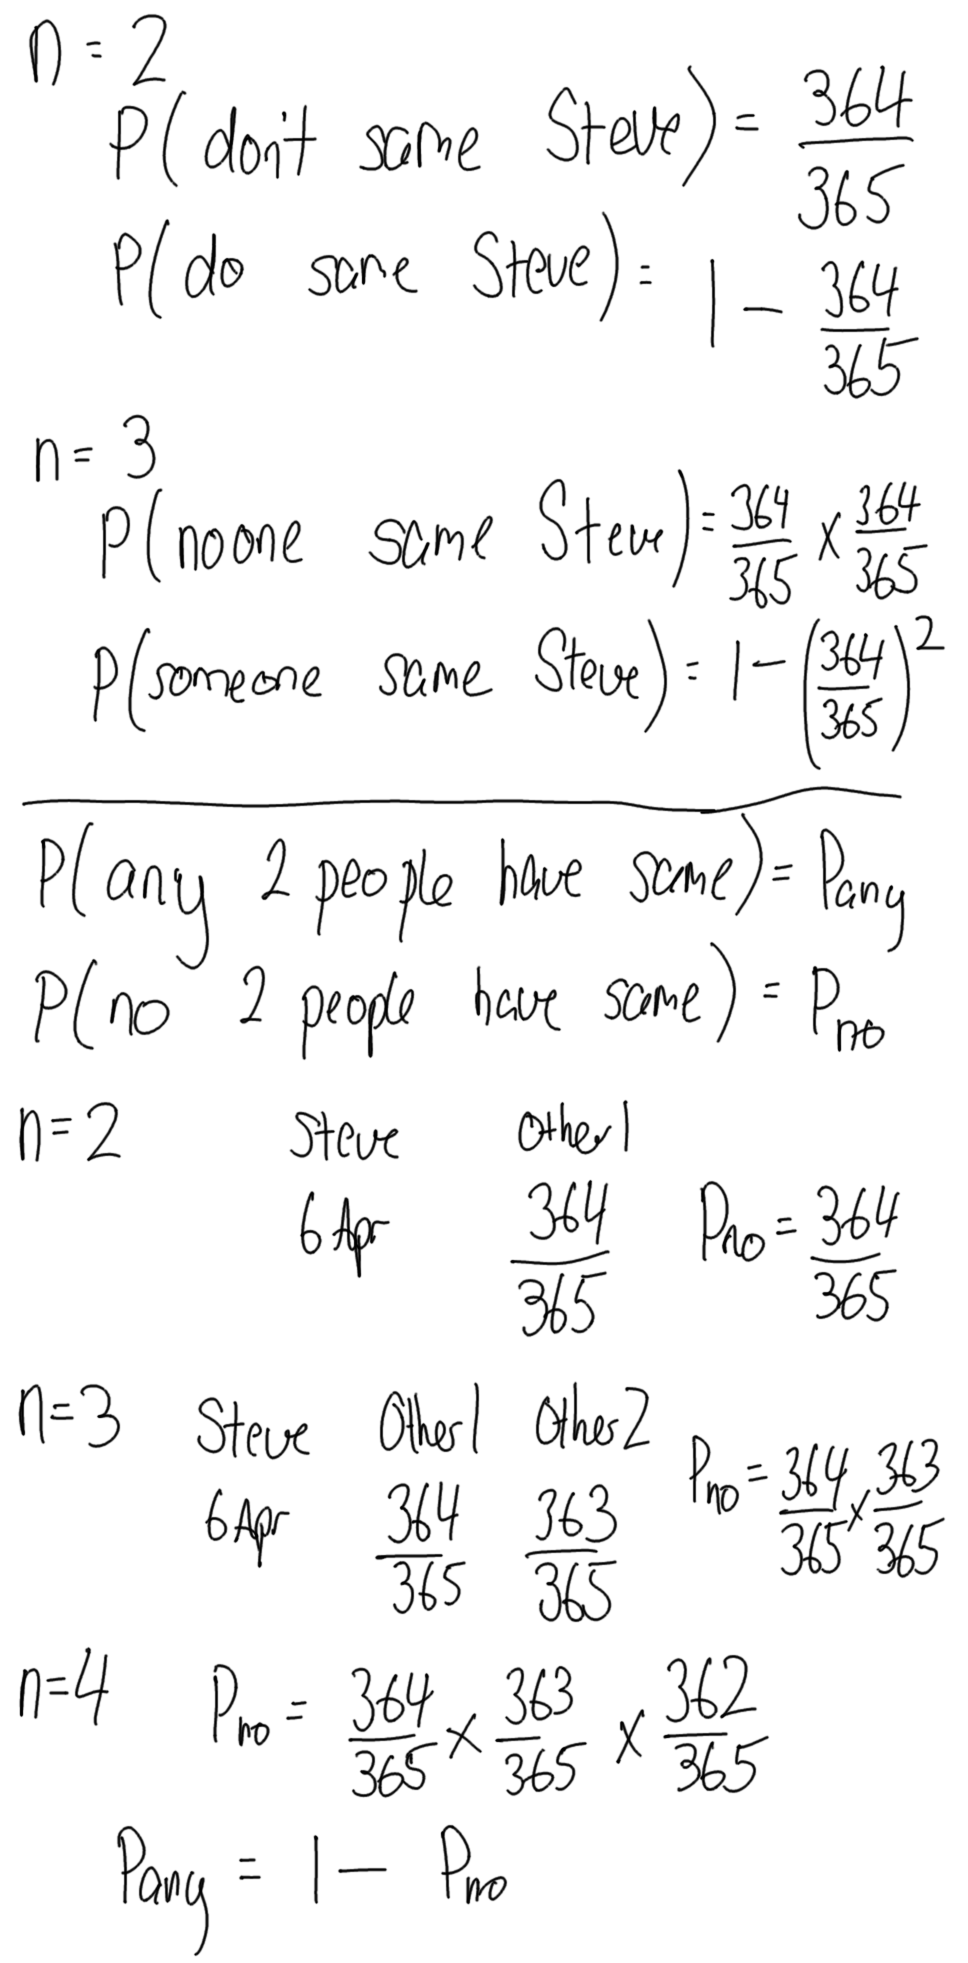 n = 2
P(don't same Steve) = 364/365
P(do same Steve) = 1 - 364/365
n = 3
P(noone same Steve) = 364/365 x 364/365
P(someone same Steve) = 1 - (364/365)^2
P(any 2 people have same) = Pany
P(no 2 people have same) = Pno
n=2 Steve Other1
6 Apr 364/365 Pno = 364/365
n=3 Steve Other1 Other2
6 Apr 364/365 363/365 Pno = 364/365 x 363/365
n=4 Pno = 364/365 x 363/365 x 362/365
Pany = 1 - Pno